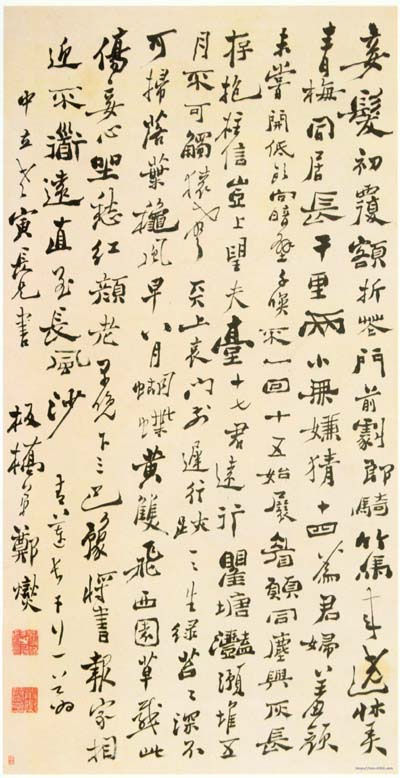 妾髮初覆額折花門前劇郎騎竹馬來遶牀弄
青梅同居長干里兩小無嫌猜十四為君婦羞顏
未嘗開低頭向暗壁千喚不一回十五始展眉願同塵與灰長
存抱柱信豈上望夫臺十七君遠行瞿塘灩澦堆五
月不可觸猿聲天上哀門前遲行跡一一生綠苔苔深不
可掃落葉秋風早八月蝴蝶黃雙飛西園草感此
傷妾心坐愁紅顏老早晚下三巴豫將書報家相
近不道遠直至長風沙 青蓮長干行一首為
中立老寅長兄書
板橋弟鄭燮